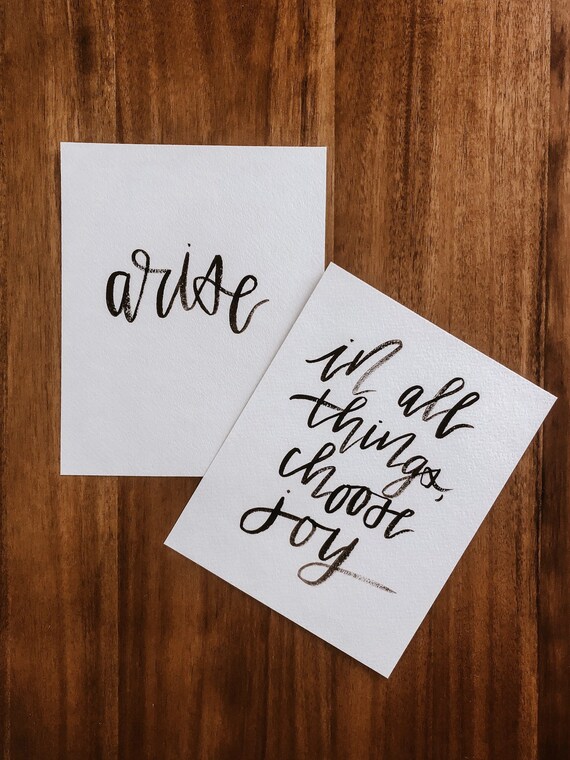 arise
in all
things,
choose
joy